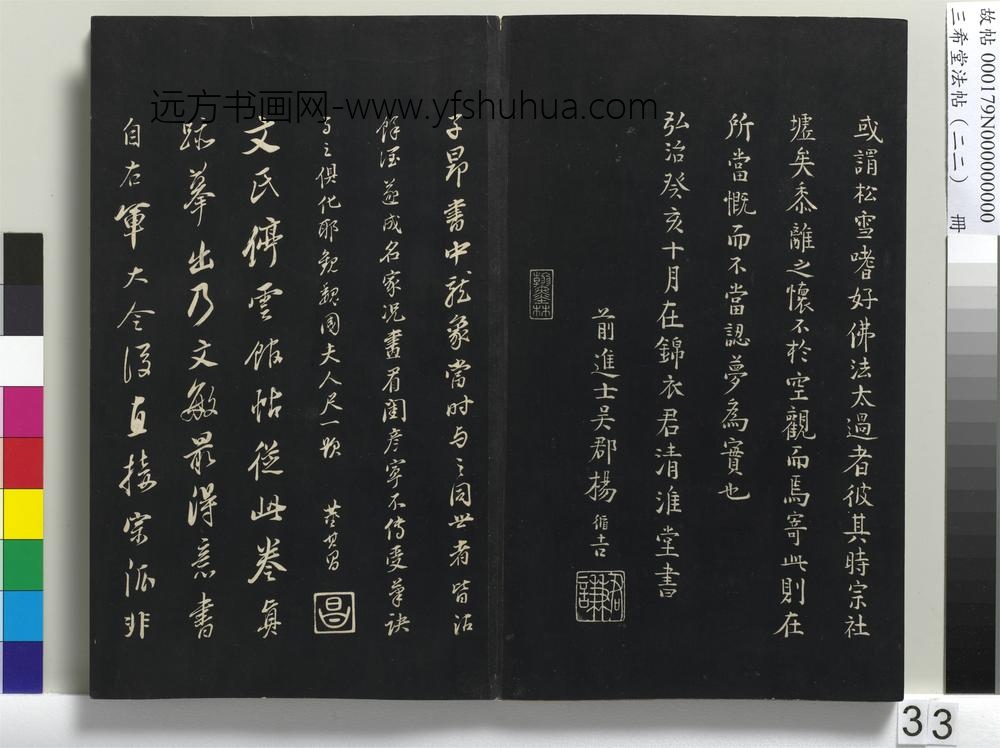 或謂松雪嗜好佛法太過者彼其時宗社
墟矣黍離之懷不於空觀而焉寄此則在
所當慨而不當認夢為實也
弘治癸亥十月在錦衣君清淮堂書
前進士吳郡楊循吉
翰墨林
君謙
子昂書中龍象當时与之同世者皆沾
餘澤遂成名家況畫眉閨彦寧不傳受筆訣
与之俱化耶觀魏國夫人尺一題
董其昌
昌
文氏停雲館帖從此卷真
跡摹出乃文敏最得意書
自右軍大令後直接宗派非
远方书画网-www.yfshuhua.com
故帖 000179N000000000
三希堂法帖（二二） 冊
33